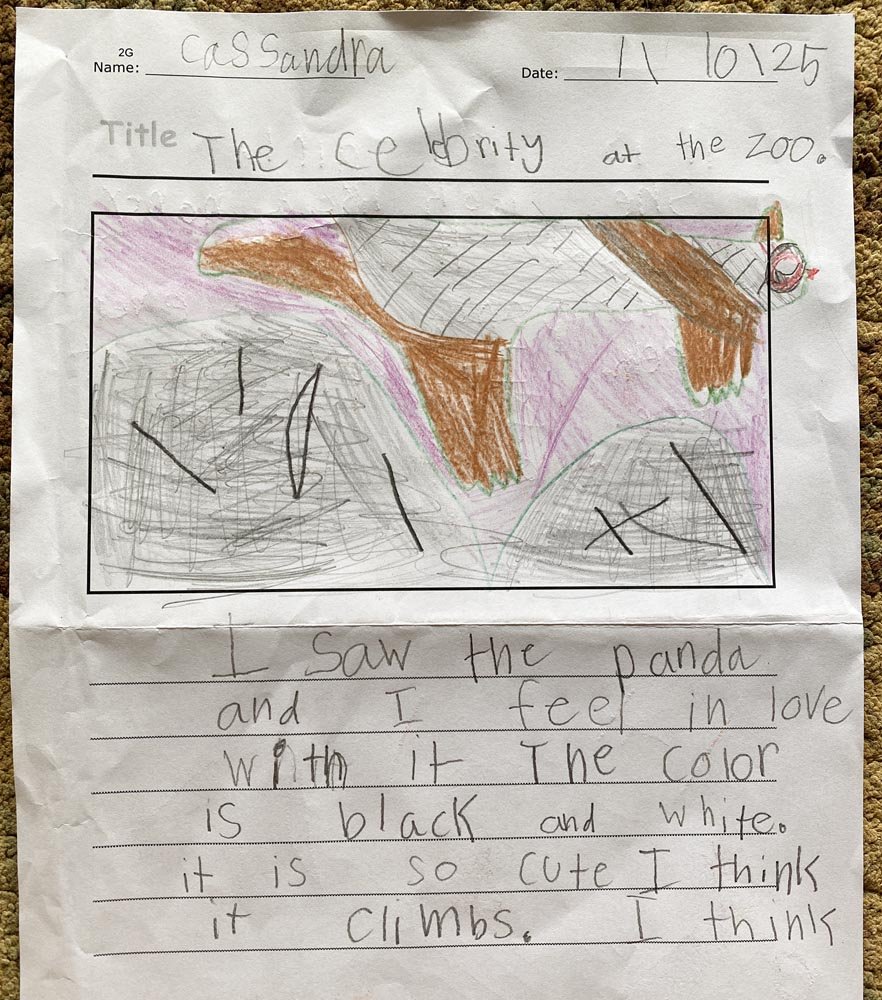 2G
Name: Cassandra Date: 11\10\25
Title The Celebrity at the zoo.
I Saw the panda
and I feel in love
with it The color
is black and white.
it is so cute I think
it climbs. I think